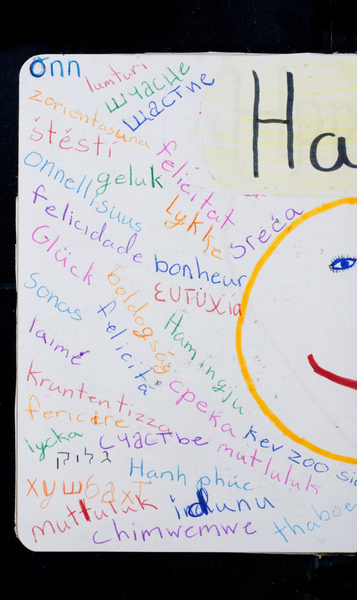 onn
lumturi
шчасце
щастие
zoriontasuna
štěstí
felicitat
Ha
onnellisuus
geluk
lykke
sreća
felicidade
bonheur
Glück
boldogság
ευτυχία
sonas
felicità
Hamingju
laimė
kruntentizza
среќа
kev zoo sia
fericire
lycka
счастье
mutluluk
גליק
Hạnh phúc
хушбахт
mutluluk
idunu
chimwemwe
thabo